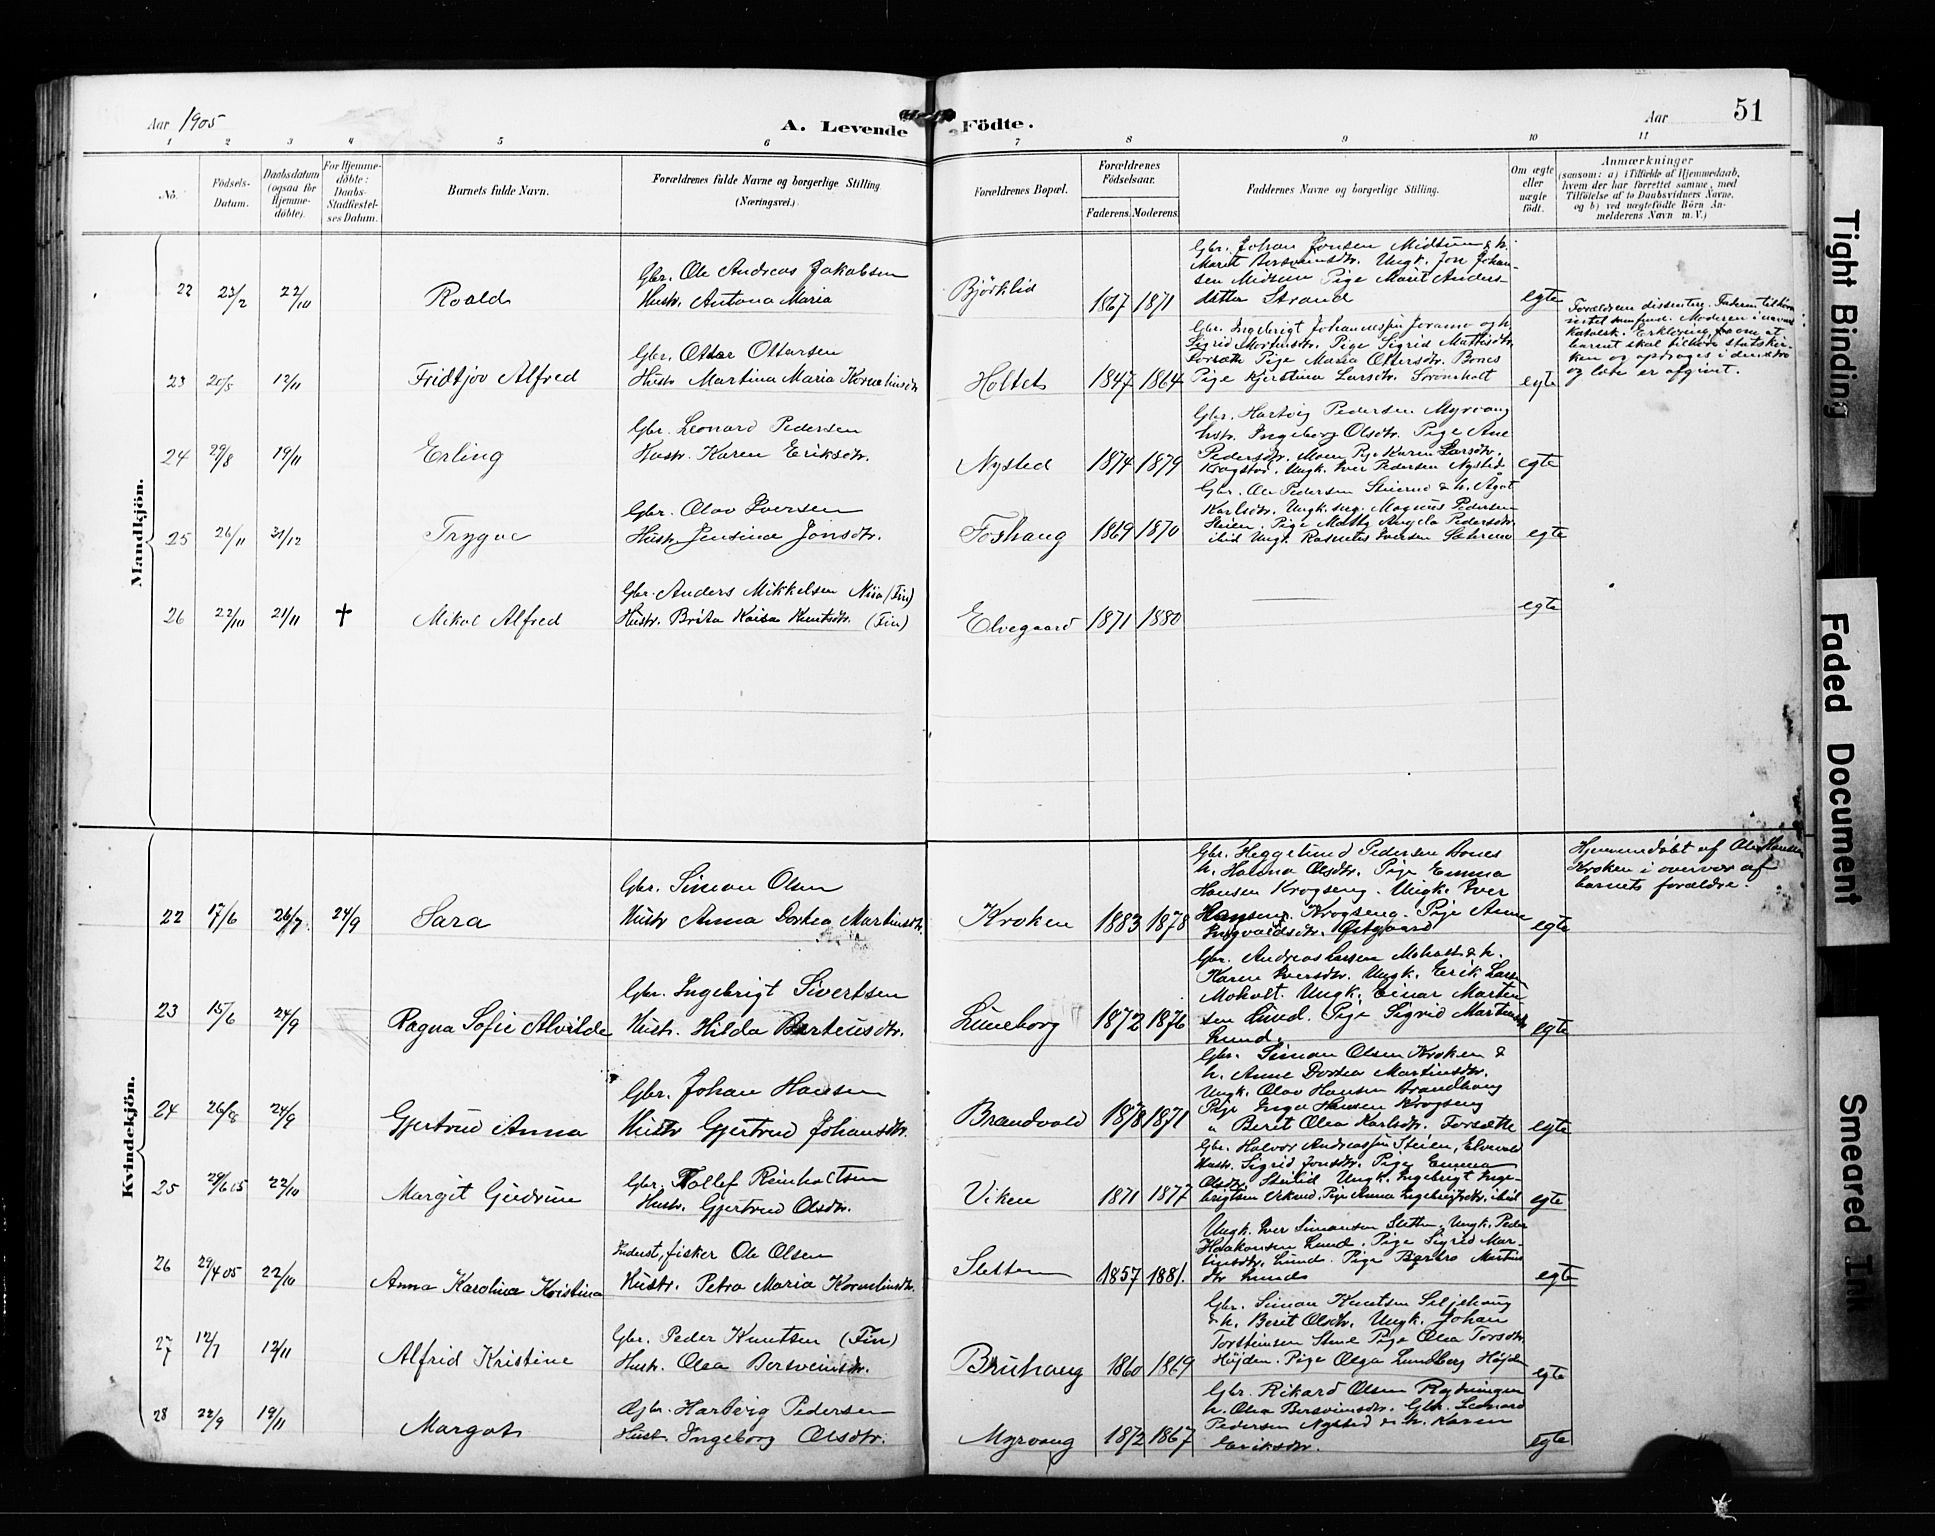 Aar 1905
A. Levende Födte.
Aar
51
1 2 3 4 5 6 7 8 9 10 11
No.
Födsels-
Datum.
Daabsdatum
(ogsaa for
Hjemme-
döbte).
For Hjemme-
döbte:
Daabs-
Stadfæstel-
ses Datum.
Barnets fulde Navn.
Forældrenes fulde Navne og borgerlige Stilling
(Næringsvei.)
Forældrenes Bopæl.
Forældrenes
Födselsaar.
Faderens. Moderens.
Faddernes Navne og borgerlige Stilling.
Om ægte
eller
uægte
födt.
Anmærkninger
(saasom: a) i Tilfælde af Hjemmedaab,
hvem der har forrettet samme, med
Tilföielse af to Daabsvidners Navne,
og b) ved uægtefödte Börn An-
melderens Navn m. V.)
Mandkjön.
22 23/2 22/10 Roald
Gbr. Ole Andreas Jakobsen
Hustr. Antona Maria
Bjørklid 1867 1871
Gbr. Johan Jonsen Midtun & h.
Marit Bersveinsdtr. Ungk. Jon Johan-
sen Midtun Pige Marit Anders-
datter Strand
egte
23 20/5 12/11 Fridtjov Alfred
Gbr. Ottar Ottarsen
Hustr Martina Maria Kornelinsdtr
Holtet 1847 1864
Gbr. Ingebrigt Johannessen og h.
Sigrid Mortensdtr. Pige Sigrid Mathisdtr
Forsætte Pige Maria Ottersdtr. Bones
Pige Kjerstina Larsdtr. Strømholt
egte
Forældrene dissentere. Faderen tilhører
intet samfund. Moderen
katolsk. Erklæring om, at
barnet skal tilhøre statskir-
ken og opdrages i denne tro
og lære er afgivet.
24 29/8 19/11 Erling
Gbr. Leonard Pedersen
Hustr. Karen Eriksdtr.
Nysted 1874 1879
Gbr. Hartvig Pedersen Myrvang
hustr. Ingeborg Olsdtr. Pige Ane
Pedersdtr. Moen Pige Karen Larsdtr.
Ungk. Iver Pedersen Nysted
egte
25 26/11 31/12 Trygve
Gbr. Olav Iversen
Hustr. Jensine Jonsdtr.
Foshaug 1869 1870
Gbr. Ole Pedersen & h. Agot
Karlsdtr. Ungk. Magnus Pedersen
Steien. Pige Angela Pedersdtr.
ibid Ungk. Rasmus Iversen
egte
26 22/10 21/11 † Mikal Alfred
Gbr. Anders Mikkelsen Niia (Fin)
Hustr. Brita Kaisa Knutsdtr. (Fin)
Elvegaard 1871 1880
egte
Kvindekjön.
22 17/6 26/7 24/9 Sara
Gbr. Simon Olsen
Hustr Anna Dortea Martinsdtr.
Kroken 1883 1878
Gbr. Heggelund Pedersen Bones
h. Hanna Olsdtr. Pige Emma
Hansen Krogseng. Ungk. Iver
Hansen Krogseng. Pige Anna
Ingvaldsdtr. Østgaard
egte
Hjemmedøbt af Ole Hansen
Kroken i overvær af
barnets forældre.
23 15/6 24/9 Ragna Sofie Alvilde
Gbr. Ingebrigt Sivertsen
Hustr. Hilda Berteusdtr.
Luneborg 1872 1876
Gbr. Andreas Larsen Moholt & h.
Karen Iversdtr. Ungk. Erik Larsen
Moholt. Ungk. Einar Marten
sen Lund. Pige Sigrid Martinsdtr
Lund.
egte
24 26/8 24/9 Gjertrud Anna
Gbr. Johan Hansen
Hustr Gjertrud Johansdtr.
Brandvold 1878 1871
Gbr. Simon Olsen Kroken &
h. Anne Dortea Martinsdtr.
Ungk. Olav Hansen Brandhaug
Pige Inga Hansen Krogseng
" Berit Olea Karlsdtr. Forsætte
egte
25 29/6 05 22/10 Margit Gudrun
Gbr. Tollef Reinholtsen
Hustr. Gjertrud Olsdtr.
Viken 1871 1877
Gbr. Halvor Andreassen Steien, Elvevold
Hustr. Sigrid Jonsdtr. Pige Emma
Olsdtr. Stenlid Ungk. Ingebrigt Inge-
brigtsen Pige Anna Ingebrigtsdtr. ibid
egte
26 29/4 05 22/10 Anna Karolina Kristina
Inderst, fisker Ole Olsen
Hustr. Petra Maria Kornelinsdtr.
Sletten 1857 1881.
Ungk. Iver Simonsen Sletten. Ungk. Peder
Haakonsen Lund. Pige Sigrid Mar-
tinsdtr. Lund. Pige Berbro Martins
dtr Lund
egte
27 12/7 12/11 Alfrid Kristine
Gbr. Peder Knutsen (Fin)
Hustr. Olea Bersveinsdtr.
Bruhaug 1860 1869
Gbr. Simon Knutsen Seljehaug
& h. Berit Olsdtr. Ungk. Johan
Torsteinsen Pige Olea Torsdtr.
Højden. Pige Olga Lundberg Højden
egte
28 22/9 19/11 Margot
Gbr. Hartvig Pedersen
Hustr. Ingeborg Olsdtr.
Myrvang 1872 1867
Gbr. Rikard Olsen Rydningen
h. Olea Bersveinsdtr. Gbr. Leonard
Pedersen Nysted & h. Karen
Eriksdtr.
egte
Tight Binding
Faded Document
Smeared Ink